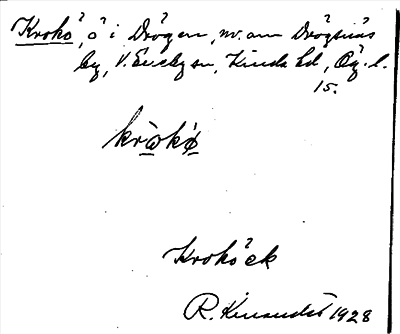 Krokö, ö i Drögen, nv. om Drögsnäs
by, V. Eneby sn, Kinda hd, Ög. l.
15.
kròkø̀
Krokö ek
R. Kinander 1928